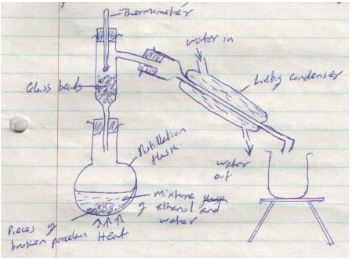 Thermometer
water in
Glass beads
Liebig condenser
Distillation
flask
water
out
mixture
of ethanol and
water
Pieces of
broken porcelain
Heat